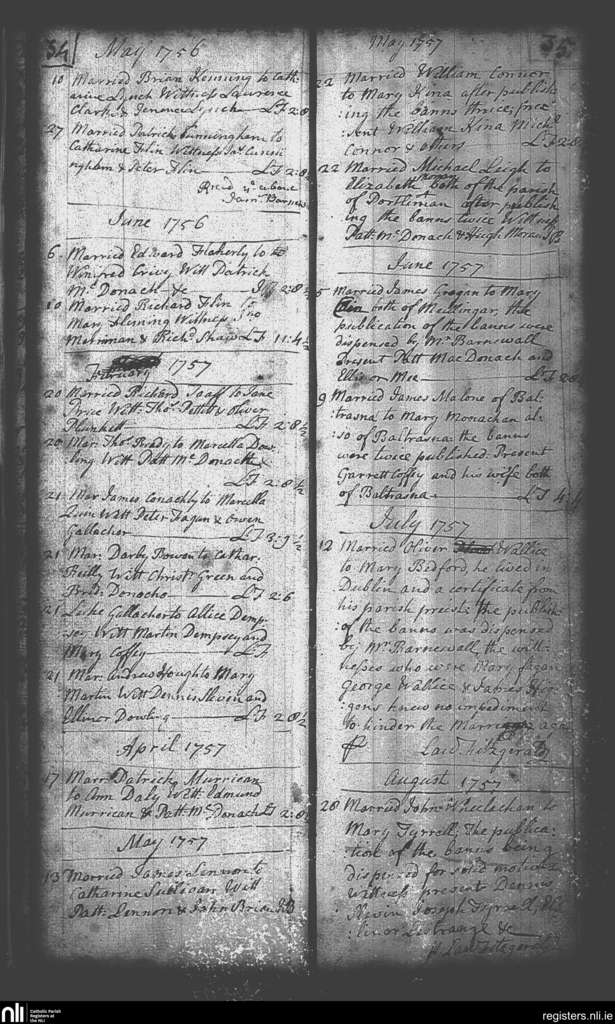 34
May 1756
10 Married Brian Kenning to Cath
arine Lynch Witness Laurence
Clark & Lynch LF 2:8
27 Married Patrick Cunningham to
Catharine Flin Witness Jas. Cunni
ngham & Peter Flin LF 2:8
June 1756
6 Married Edward Flaherly to
Winifred Witt Patrick
Mc Donach &c
10 Married Richard Flin to
Mary Fleming Witness
Merriman & Richd. Shaw LF 11:4½
February 1757
20 Married Richard to Jane
Price Witt Thos. Pettit & Oliver
Plunkett LF 2:8½
20 Mar: Thos. Brady to Marcella Dow
ling Witt Patt Mc Donach &
LF 2:8½
21 Mar James Conachly to Marcella
Quin Witt Peter Fagan & Owen
Gallacher LF 3:9½
21 Mar: Darby Bowen to Cathar.
Reilly Witt Christr. Green and
Donocho LF 2:6
21 Luke Gallacher to Allice Demp
sey Witt Martin Dempsey and
Mary Coffey LF
21 Mar: Andrew Hought to Mary
Martin Witt Dennis Slevin and
Ellinor Dowling LF 2:8½
April 1757
17 Marrd. Patrick Murrican
to Ann Daly Witt Edmund
Murrican & Patt Mc Donach LF 2:8
May 1757
13 Married James Lennon to
Catharine Sullivan Witt
Patt: Lennon & John Brian
May 1757
35
22 Married William Connor
to Mary Kina after publish
:ing the banns thrice, pre
:sent William Kina Michl.
Connor & others LF 2:8
22 Married Michael Leigh to
Elizabeth both of the parish
of Portliman after publish
ing the banns twice Witness
Patt: Mc Donach & Hugh Moran
June 1757
5 Married James Grogan to Mary
both of Mullingar, the
publication of the banns were
dispensed by Mr. Barnswall
Present Patt MacDonach and
Ellinor Moe LF 2:8
9 Married James Malone of Bal
trasna to Mary Monachan al
so of Baltrasna: the banns
were twice published. Present
Garrett Coffey and his wife both
of Baltrasna LF 4:4
July 1757
12 Married Oliver Wallice
to Mary Bedford he lived in
Dublin and a certificate from
his parish preist: the publish
of the banns was dispensed
by Mr. Barnewall the witt
nesses who were Mary Fagan
George Wallice & James Hor
gons knew no impediment
to hinder the Marriage
Law: Fitzgerald
August 1757
28 Married John to
Mary Tyrrell, The publica
:tion of the banns being
dispensed for solid motives
Witness present Dennis
Slevin Joseph Tyrrell,
:linor Lestrange &c
Law: Fitzgerald
nli
Catholic Parish
Registers at
the NLI
registers.nli.ie